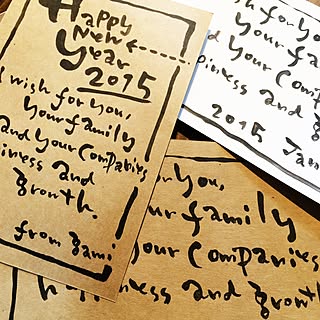 Happy
New
Year
2015
I wish for you,
your family
and your Companies
piness and
growth.
from Gami
sh for you
your fami
d your Compa
piness and g
2015 Jan
or you,
ur family
your Companies
ness and growt